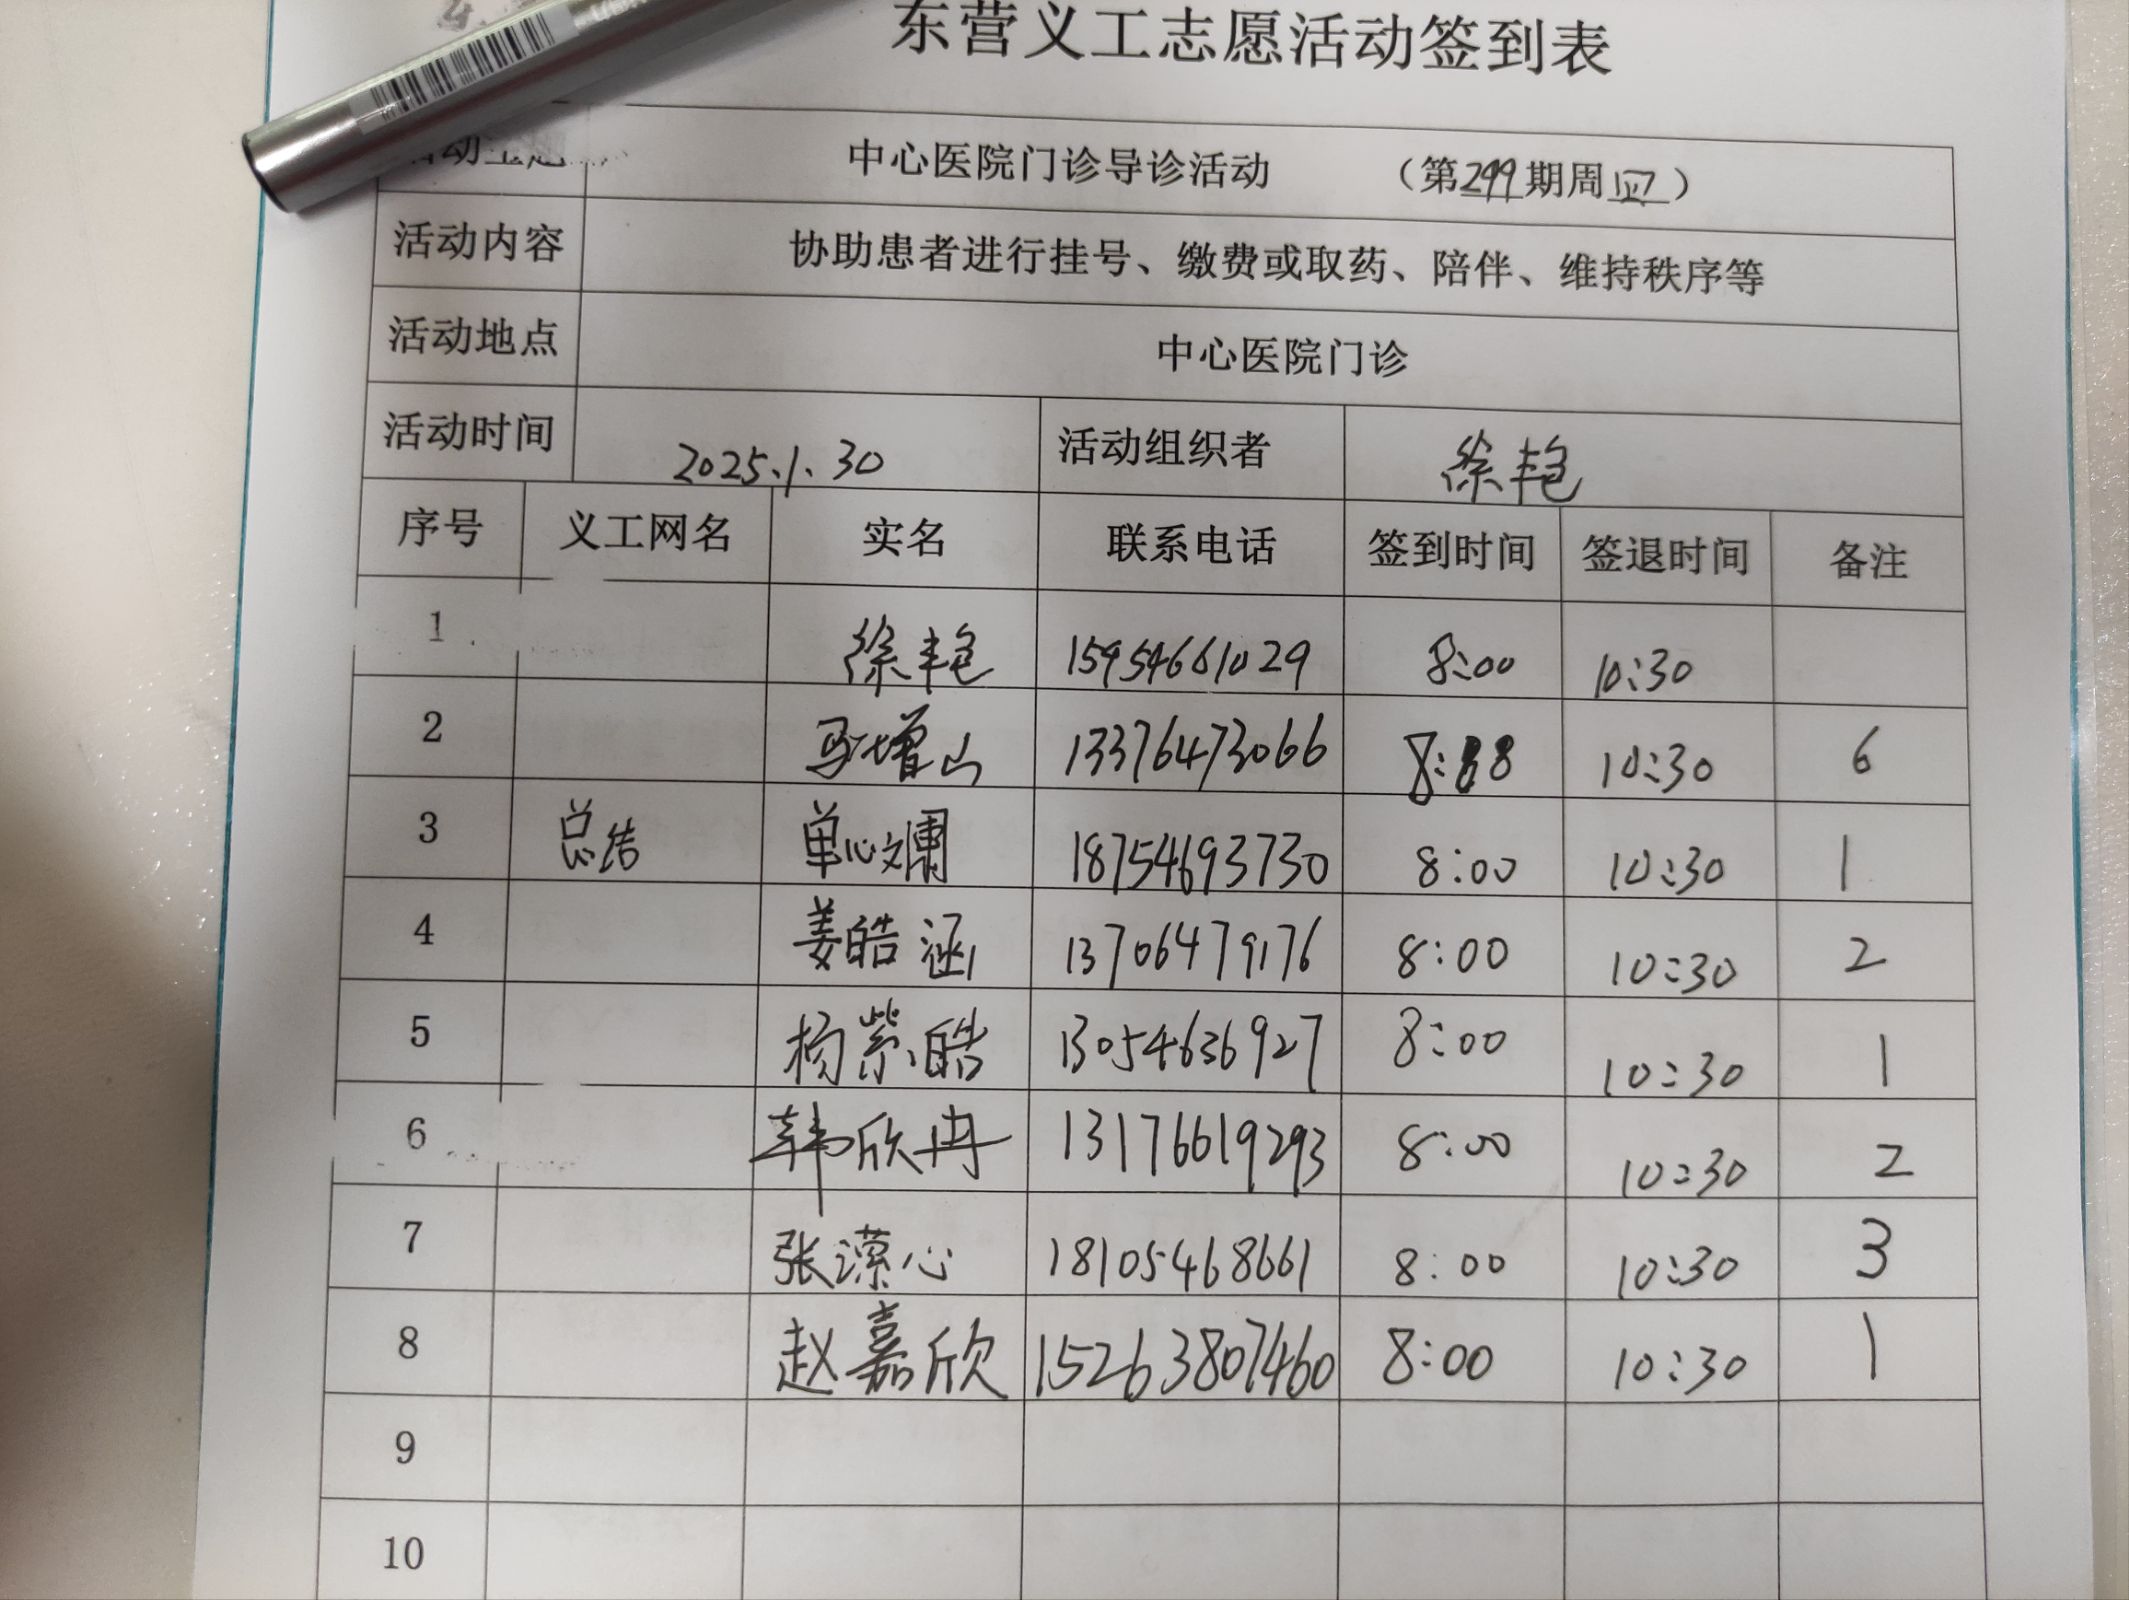 东营义工志愿活动签到表
中心医院门诊导诊活动 （第299期周四）
活动内容 协助患者进行挂号、缴费或取药、陪伴、维持秩序等
活动地点 中心医院门诊
活动时间 2025.1.30 活动组织者 徐艳
序号 义工网名 实名 联系电话 签到时间 签退时间 备注
1 徐艳 15954661029 8:00 10:30
2 马增山 13376473066 8:88 10:30 6
3 总结 单心斓 18754693730 8:00 10:30 1
4 姜皓涵 13706479176 8:00 10:30 2
5 杨紫皓 13054636927 8:00 10:30 1
6 韩欣冉 13176619293 8:00 10:30 2
7 张潆心 18105468661 8:00 10:30 3
8 赵嘉欣 15263807460 8:00 10:30 1
9
10